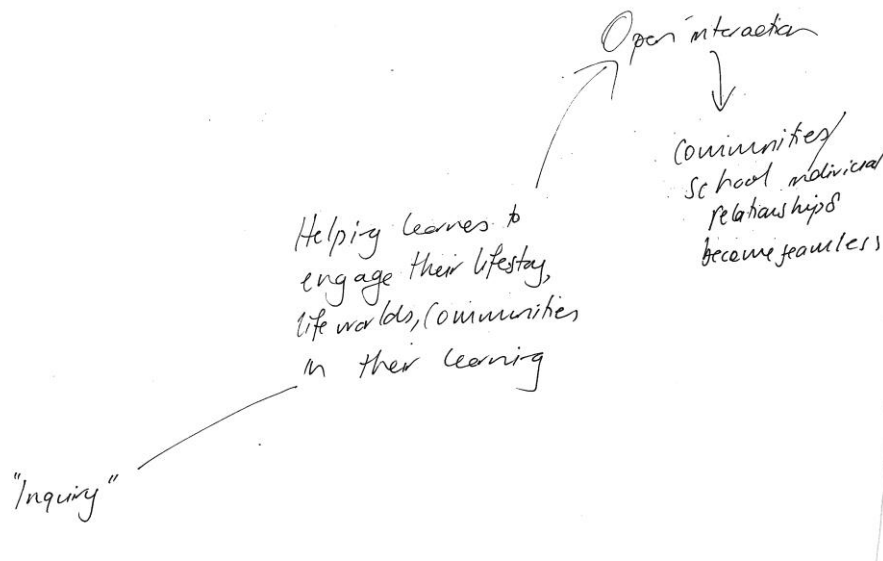 Open interaction
Communities/
school individual
relationships
become seamless
Helping learners to
engage their lifestory,
life worlds, Communities
in their learning
"Inquiry"